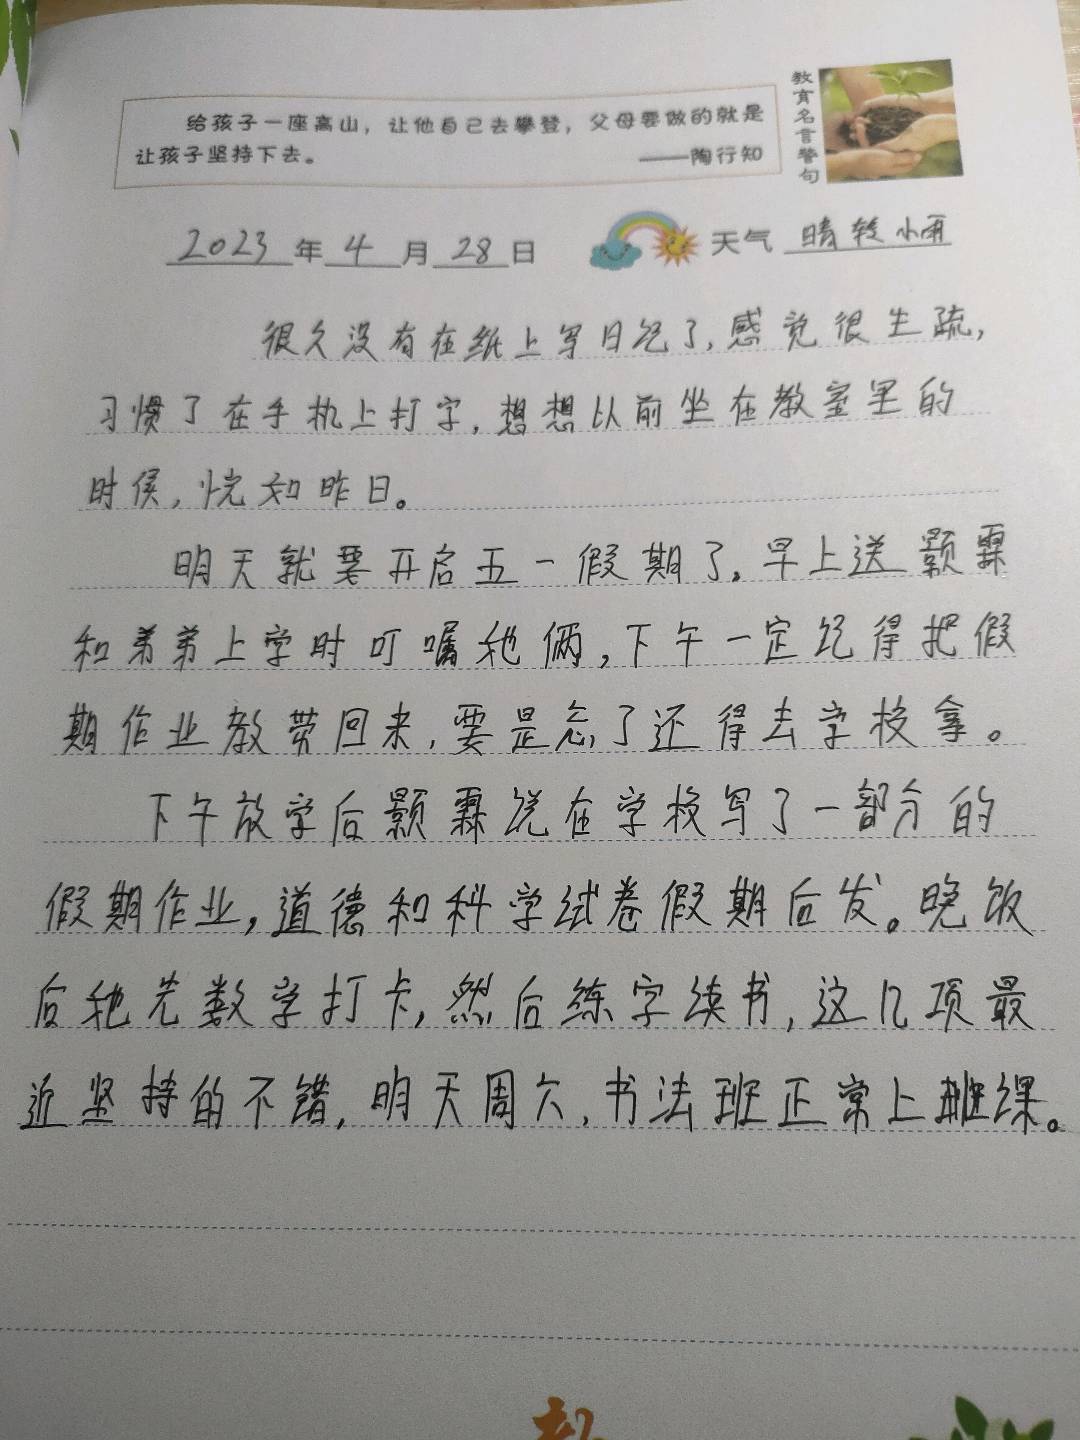 给孩子一座高山，让他自己去攀登，父母要做的就是
让孩子坚持下去。 ——陶行知
教育名言警句
2023年4月28日 天气 晴转小雨
很久没有在纸上写日记了,感觉很生疏,
习惯了在手机上打字,想想以前坐在教室里的
时候,恍如昨日。
明天就要开启五一假期了。早上送颢霖
和弟弟上学时叮嘱他俩,下午一定记得把假
期作业都带回来,要是忘了还得去学校拿。
下午放学后颢霖说在学校写了一部分的
假期作业,道德和科学试卷假期后发。晚饭
后他先数学打卡,然后练字读书,这几项最
近坚持的不错,明天周六,书法班正常上课。